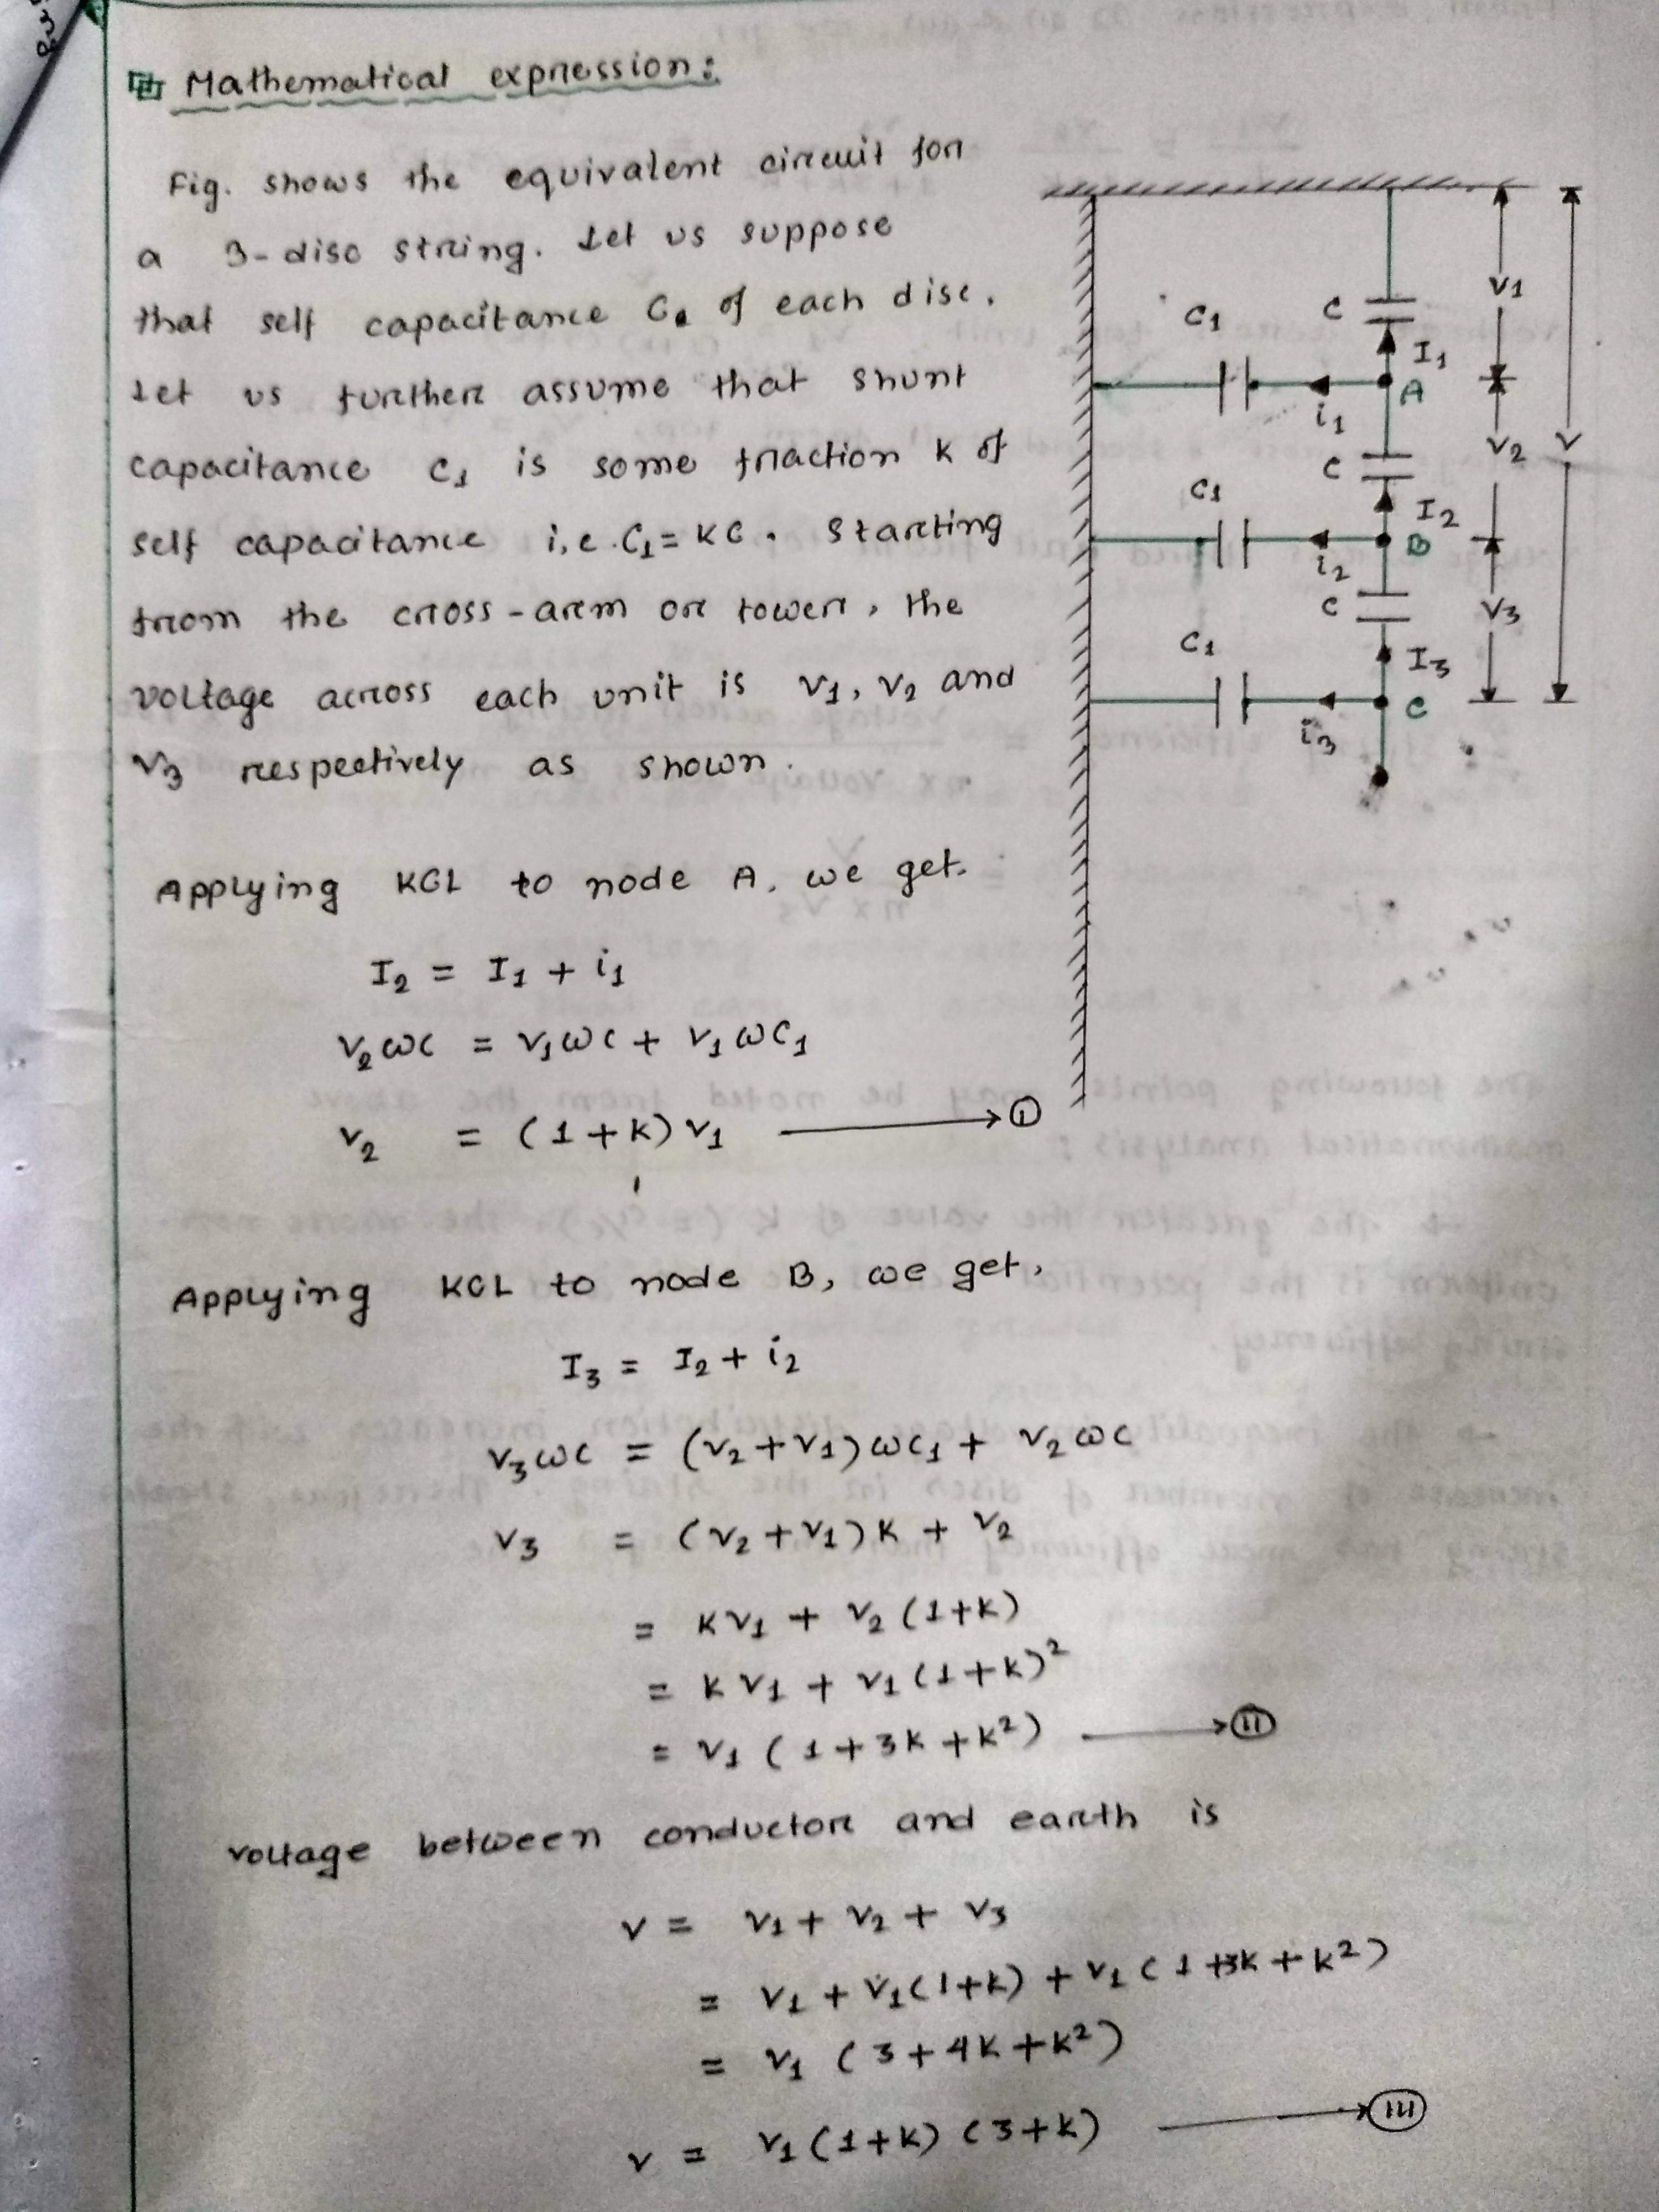 Mathematical expression:
Fig. shows the equivalent circuit for
a 3-disc string. Let us suppose
that self capacitance C of each disc.
Let us further assume that shunt
capacitance C1 is some fraction K of
self capacitance i,e. C1 = KC. Starting
from the cross-arm or tower, the
voltage across each unit is V1, V2 and
V3 respectively as shown.
C1 C I1 A i1 V1
C1 C I2 B i2 V2 V
C1 C I3 C i3 V3
Applying KCL to node A, we get.
I2 = I1 + i1
V2ωC = V1ωC + V1ωC1
V2 = (1+K)V1 → (i)
Applying KCL to node B, we get,
I3 = I2 + i2
V3ωC = (V2+V1)ωC1 + V2ωC
V3 = (V2+V1)K + V2
= KV1 + V2(1+K)
= KV1 + V1(1+K)²
= V1(1+3K+K²) → (ii)
voltage between conductor and earth is
V = V1 + V2 + V3
= V1 + V1(1+K) + V1(1+3K+K²)
= V1(3+4K+K²)
V = V1(1+K)(3+K) → (iii)